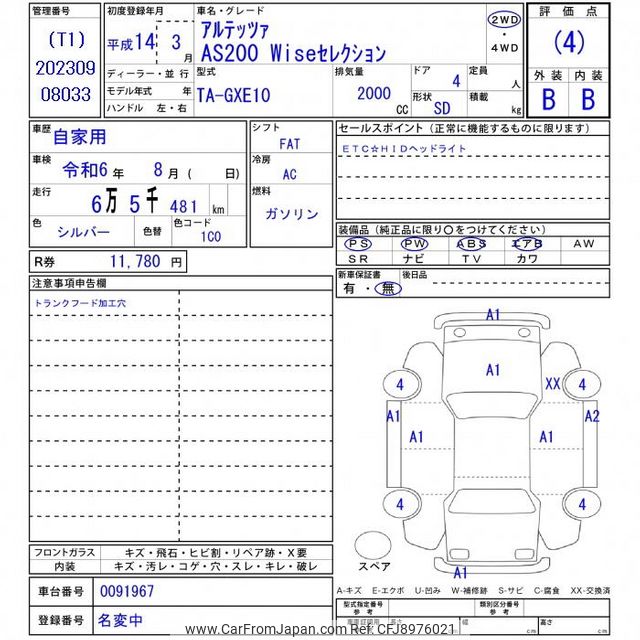 管理番号
(T1)
202309
08033
初度登録年月
平成14年 3月
ディーラー・並行
モデル年式 年
ハンドル 左・右
車名・グレード
アルテッツァ
AS200 Wiseセレクション
2WD
・
4WD
型式
TA-GXE10
排気量
2000
CC
ドア 4
定員 人
形状 SD
積載 kg
評価点
(4)
外装 内装
B B
車歴
自家用
車検
令和6年 8月( 日)
走行
6万 5千 481 km
色
シルバー
色替
色コード
1C0
シフト
FAT
冷房
AC
燃料
ガソリン
セールスポイント(正常に機能するものに限ります)
ETC☆HIDヘッドライト
装備品(純正品に限り○をつけてください)
PS PW ABS エアB AW
SR ナビ TV カワ
新車保証書
有・無
後日品
R券 11,780 円
注意事項申告欄
トランクフード加工穴
A1
A1
XX
4
4
A1
A2
A1
A1
4
4
スペア
A1
フロントガラス キズ・飛石・ヒビ割・リペア跡・X要
内装 キズ・汚レ・コゲ・穴・スレ・キレ・破レ
A-キズ E-エクボ U-凹み W-補修跡 S-サビ C-腐食 XX-交換済
車台番号 0091967
登録番号 名変中
型式指定番号
参考
類別区分番号
参考
長さ cm
幅 cm
高さ cm
www.CarFromJapan.com Ref: CFJ8976021